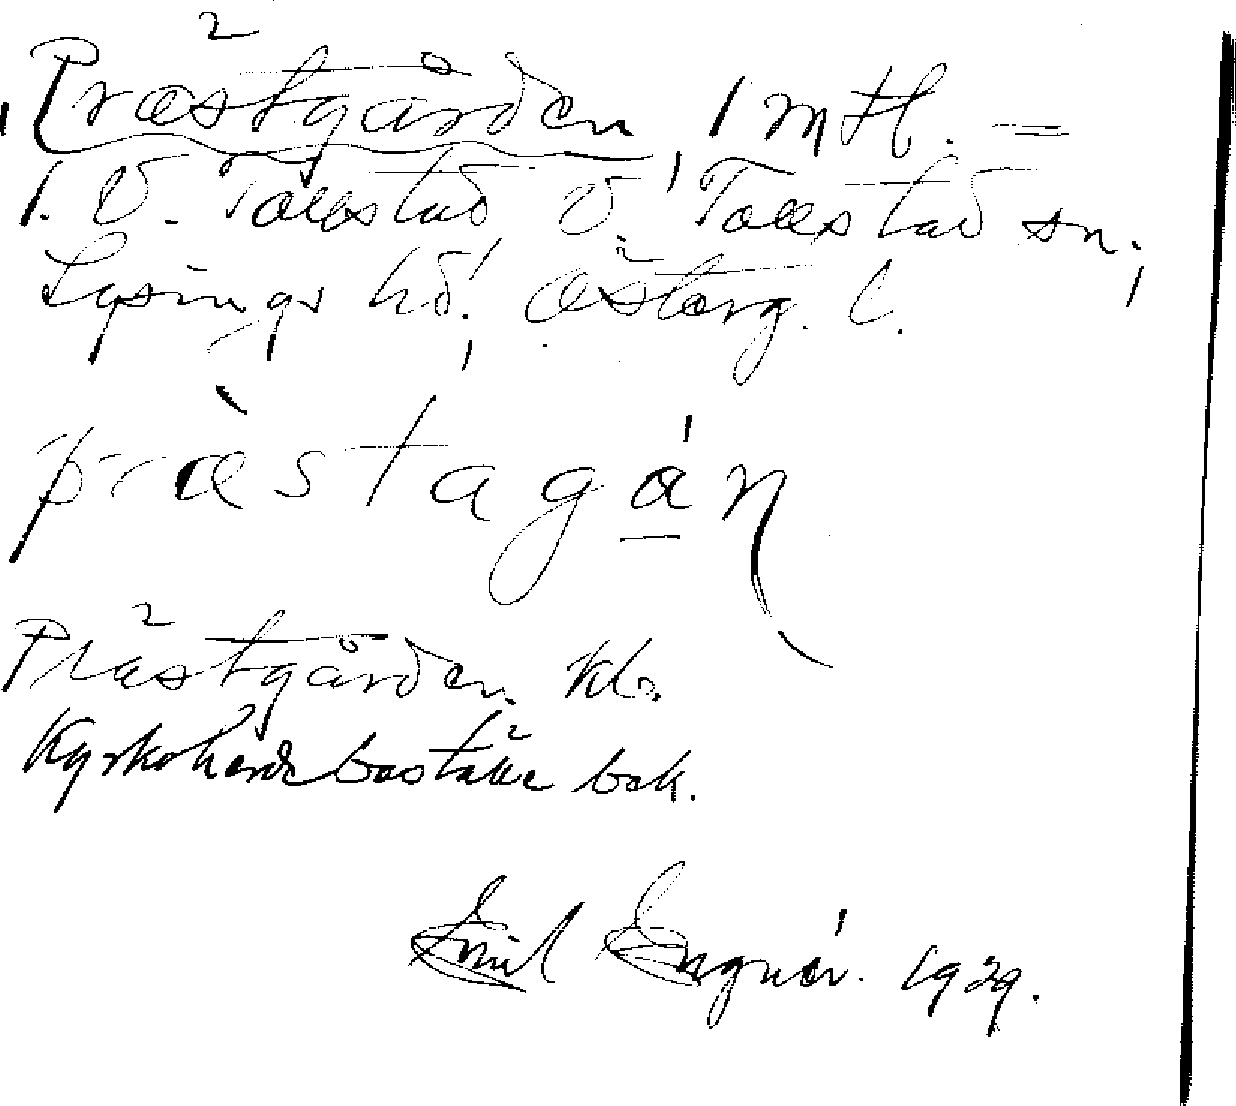 Prästgården, 1 mtl. =
1. V. Tollstad V. Tollstad sn,
Lysings hd. Österg. l.
pràstagán
Prästgården. kl.
Kyrkoherdeboställe bok.
Emil Engnér. 1929.